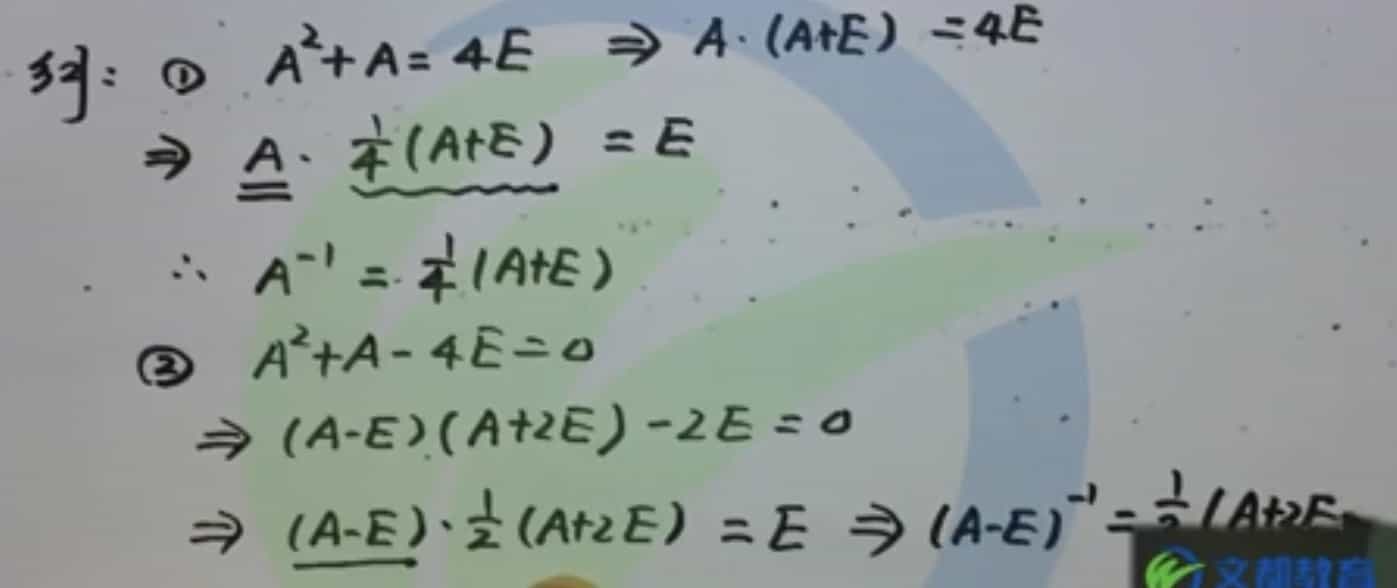 解: ① A²+A= 4E ⇒ A·(A+E) =4E
⇒ A · 1/4(A+E) = E
∴ A⁻¹ = 1/4(A+E)
② A²+A-4E=0
⇒ (A-E)(A+2E)-2E=0
⇒ (A-E)·1/2(A+2E) = E ⇒ (A-E)⁻¹=1/2(A+2E
文都教育